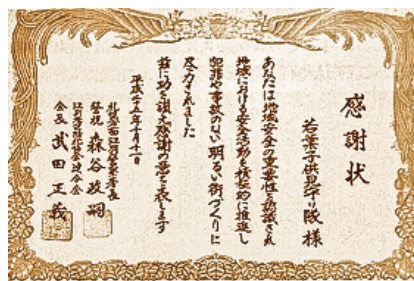 感謝状
若葉子供見守り隊 様
あなたは地域安全の重要性を認識され
地域における安全活動を積極的に推進し
犯罪や事故のない明るい街づくりに
尽力されました
茲に功を讃え感謝の意を表します
平成二十五年十月十一日
札幌方面江別警察署長
警視 森谷政嗣
江別
会長 武田正義